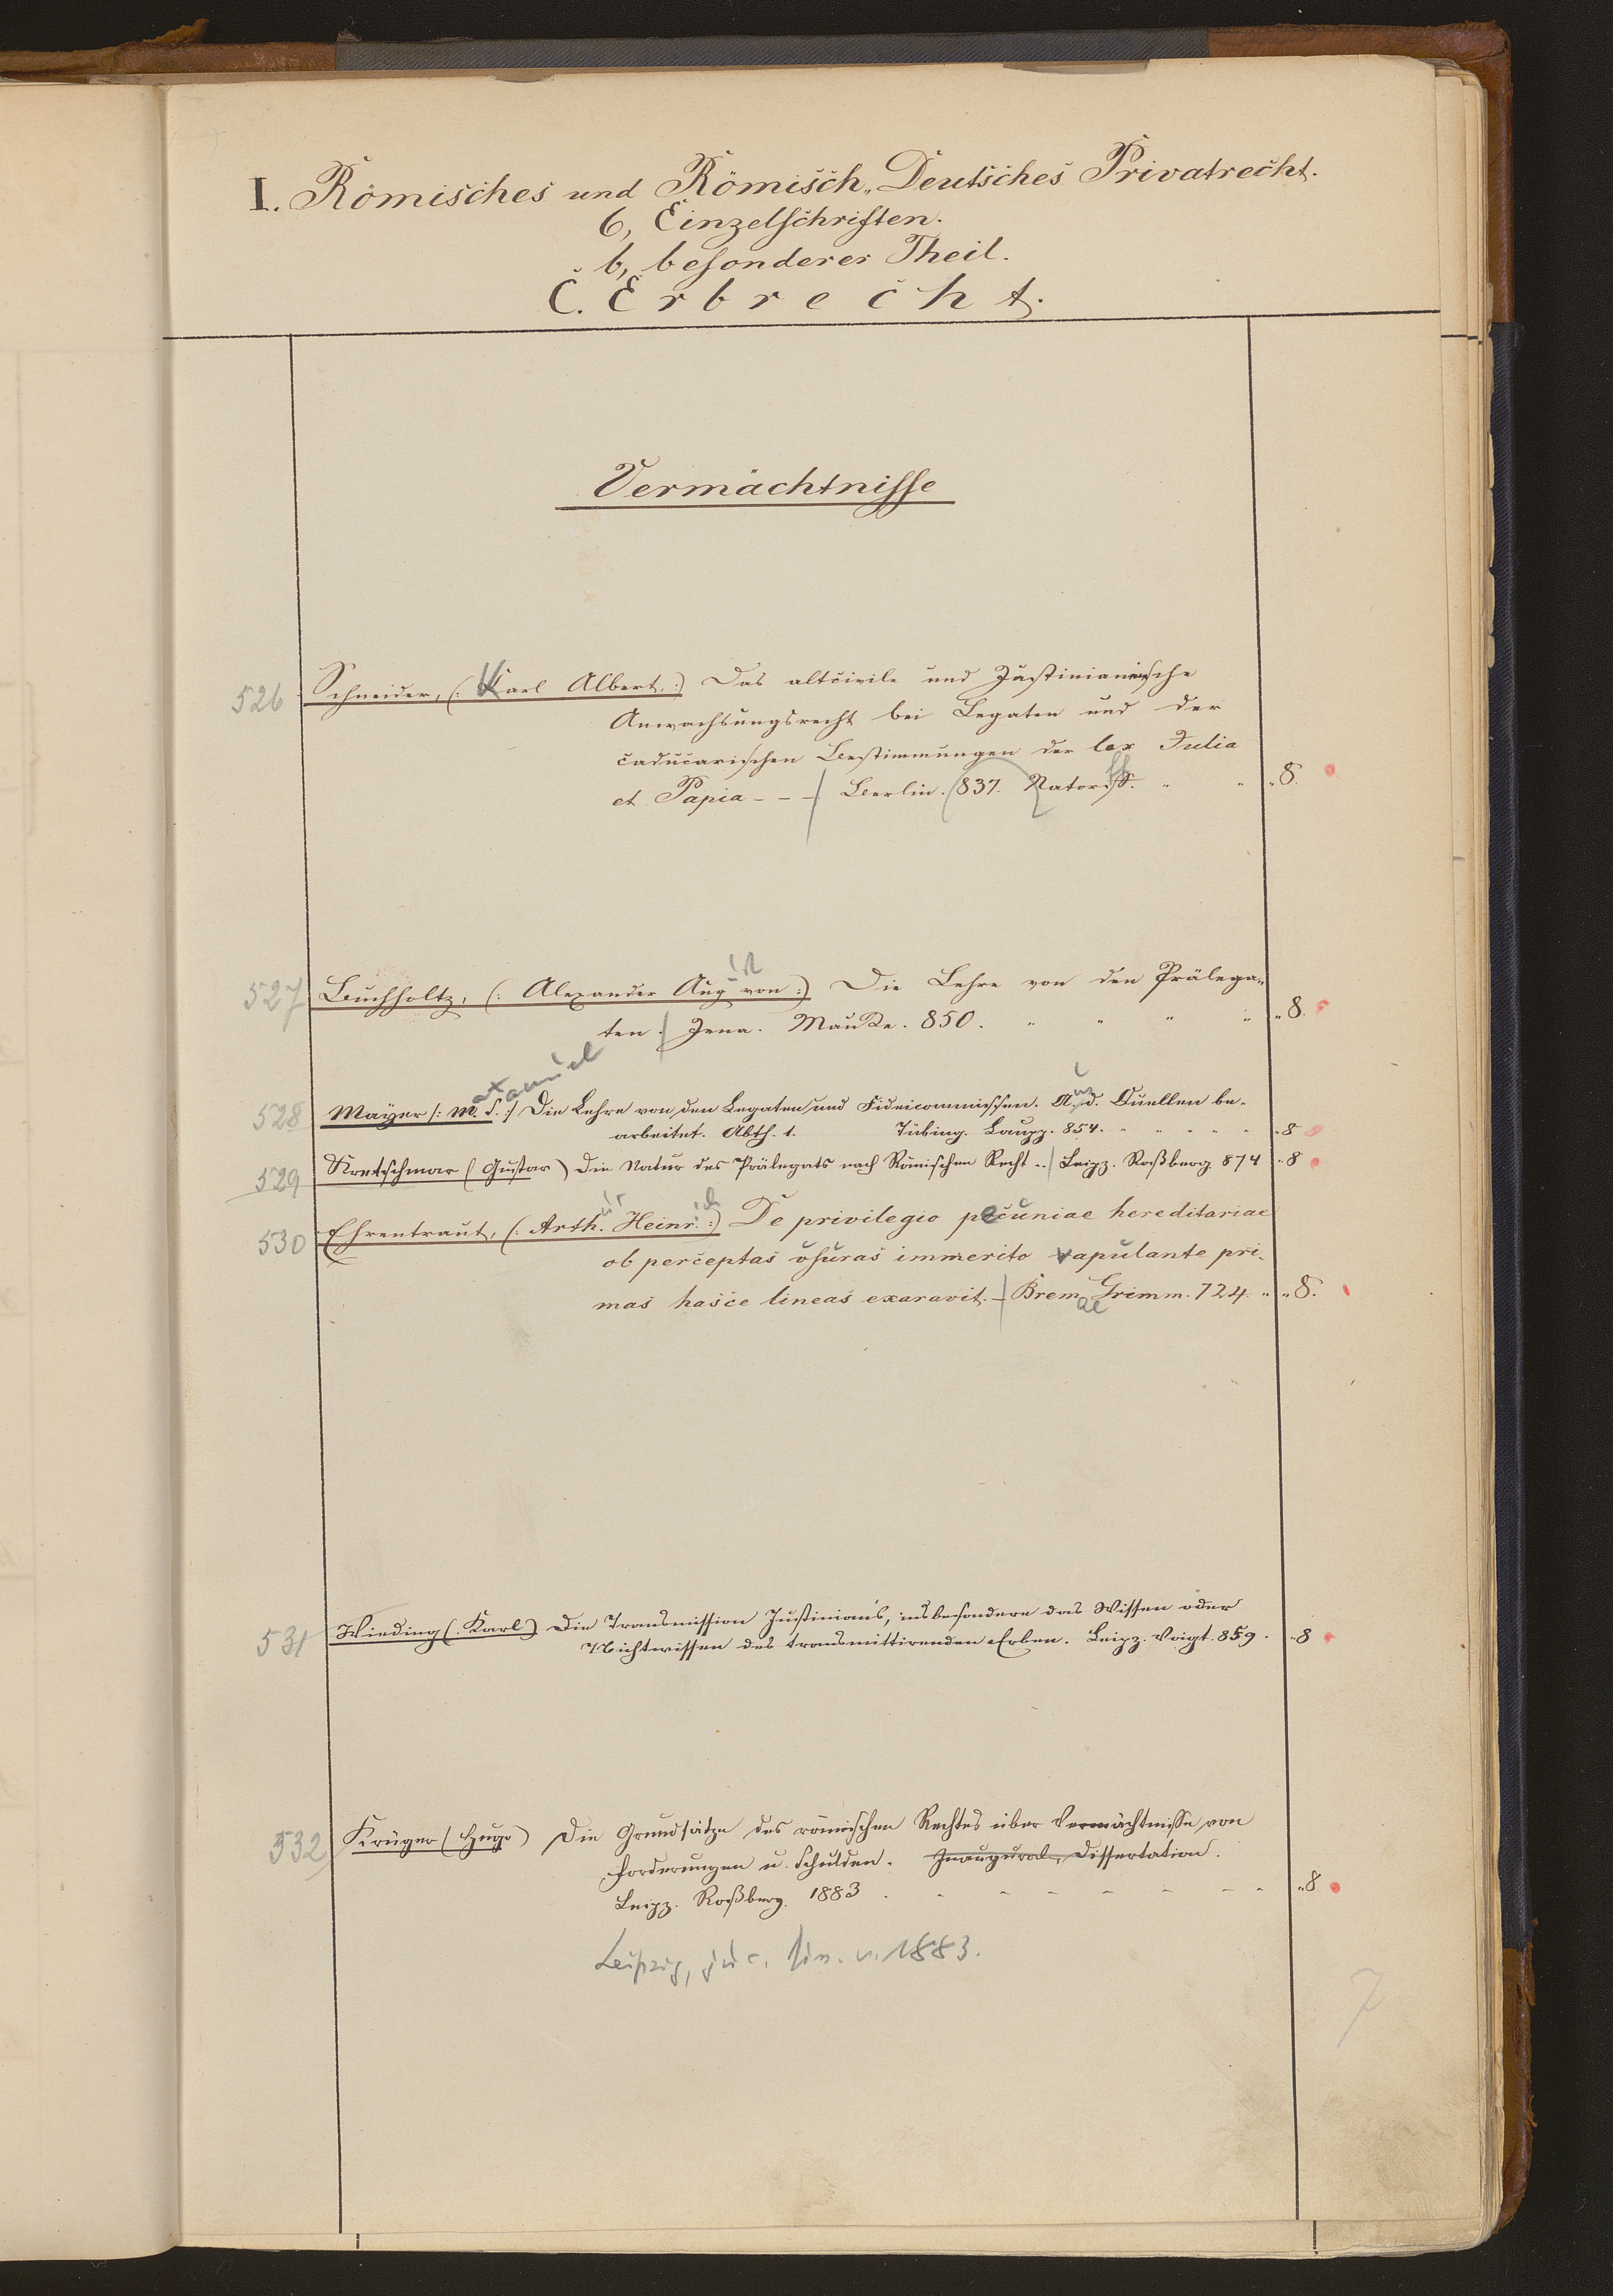 I. Römisches und Römisch-Deutsches Privatrecht.
6, Einzelschriften.
b, besonderer Theil.
C. Erbrecht.
Vermächtnisse
526 Schneider, (: Karl Albert :) Das altcivile und Justinianische
Anwachsungsrecht bei Legaten und der
caducarischen Bestimmungen der lex Julia
et Papia - - - Berlin. 837. Natorff. " " " 8.
527 Buchholtz, (: Alexander August von :) Die Lehre von den Prälega-
ten. Jena. Mauke. 850. " " " " " 8.
528 Mayer (: Max Samuel :) Die Lehre von den Legaten und Fideicommissen. Aus d. Quellen be-
arbeitet. Abth. 1. Tübing. Laupp. 854. " " " " " 8
529 Kretschmar (Gustav) Die Natur des Prälegats nach Römischen Recht .. Leipz. Roßberg 874 " 8
530 Ehrentraut, (: Arth. Heinr. :) De privilegio pecuniae hereditariae
ob perceptas usuras immerito vapulante pri-
mas hasce lineas exaravit. - Bremae Grimm. 724. " " 8.
531 Wieding (Karl) Die Transmission Justinian's, insbesondere das Wissen oder
Nichtwissen des transmittirenden Erben. Leipz. Voigt. 859. " 8
532 Krüger (Hugo) Die Grundsätze des römischen Rechtes über Vermächtnisse von
Forderungen u. Schulden. Inaugural-Dissertation.
Leipz. Roßberg. 1883 . - - - - - - - " 8
Leipzig, jur. Diss. v. 1883.
7